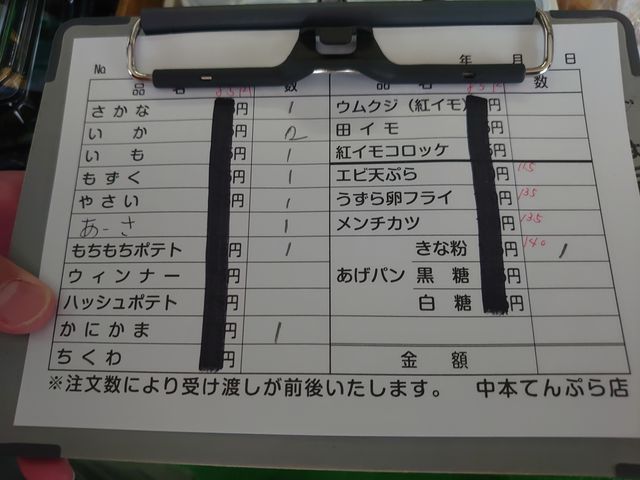 No. 年 月 日
品 名 85円 数 品 名 85円 数
さかな 円 1 ウムクジ（紅イモ） 円
いか 円 2 田イモ 円
いも 円 1 紅イモコロッケ 円
もずく 円 1 エビ天ぷら 円 115
やさい 円 1 うずら卵フライ 円 135
あーさ 円 1 メンチカツ 円 135
もちもちポテト 円 1 きな粉 円 140 1
ウィンナー 円 あげパン 黒糖 円
ハッシュポテト 円 白糖 円
かにかま 円 1
ちくわ 円 金額
※注文数により受け渡しが前後いたします。 中本てんぷら店